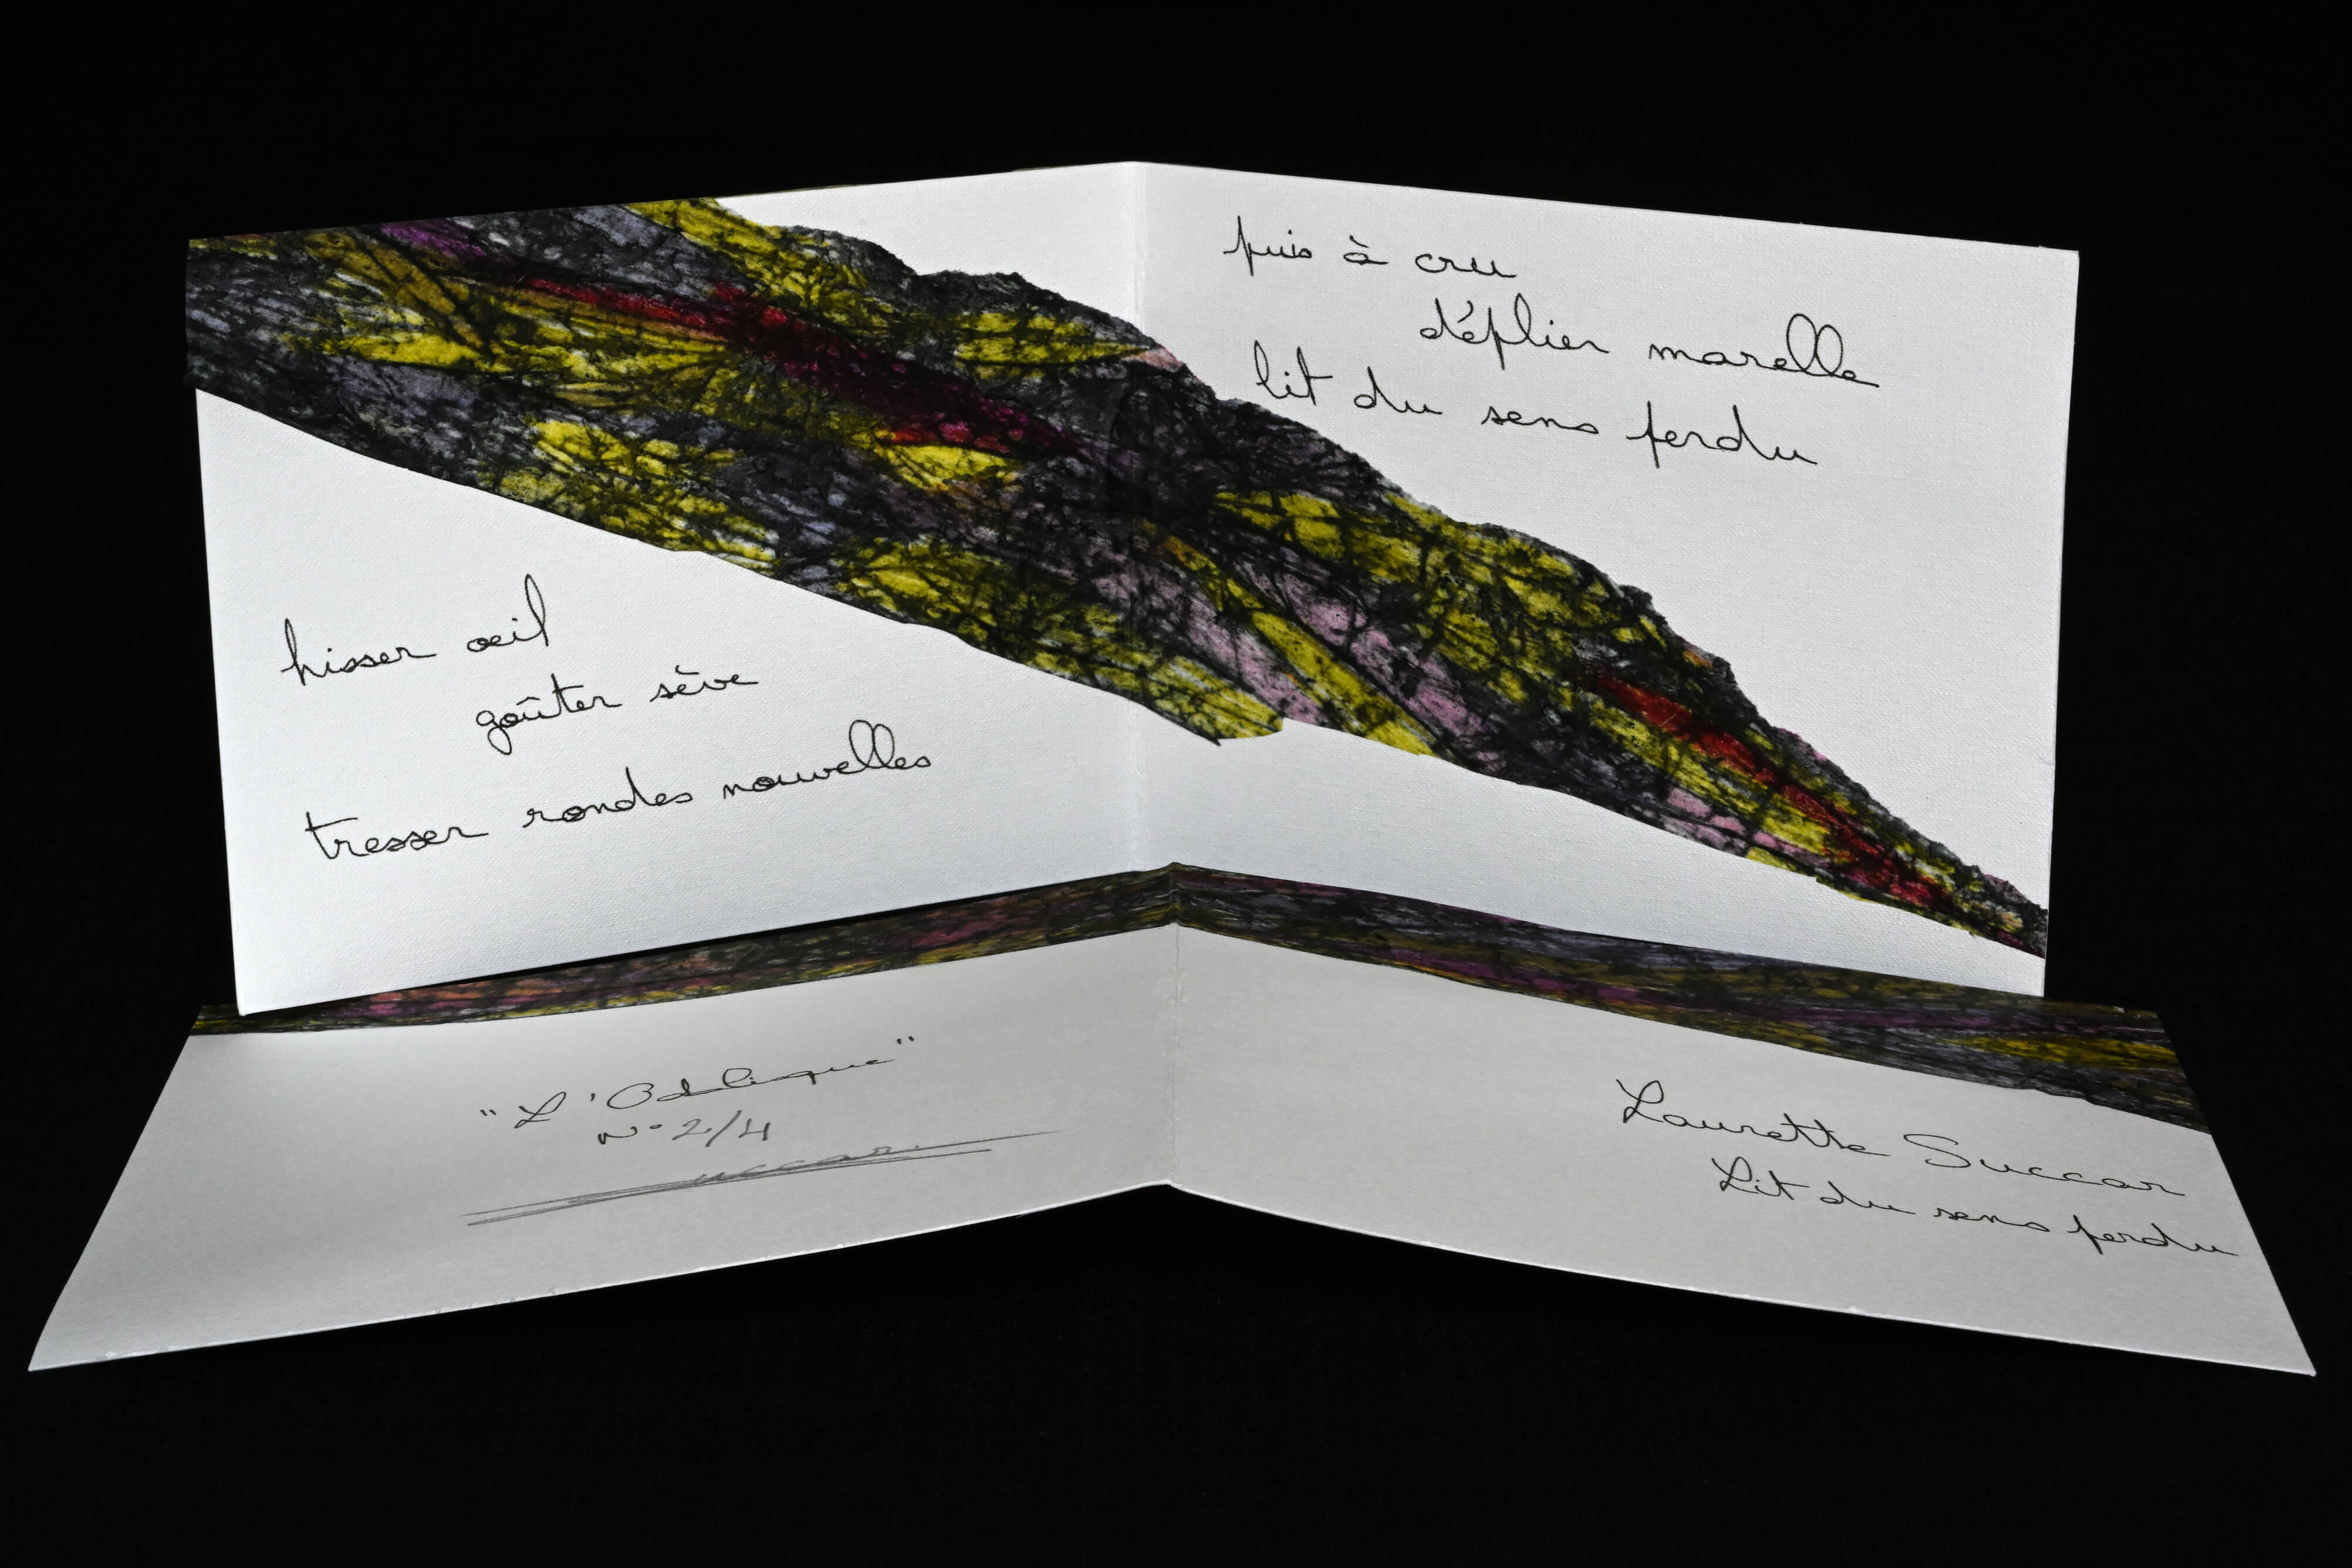 hisser oeil
goûter sève
tresser rondes nouvelles
puis à cru
déplier marelle
lit du sens perdu
"L'Oblique"
N° 2/4
Succar
Laurette Succar
Lit du sens perdu